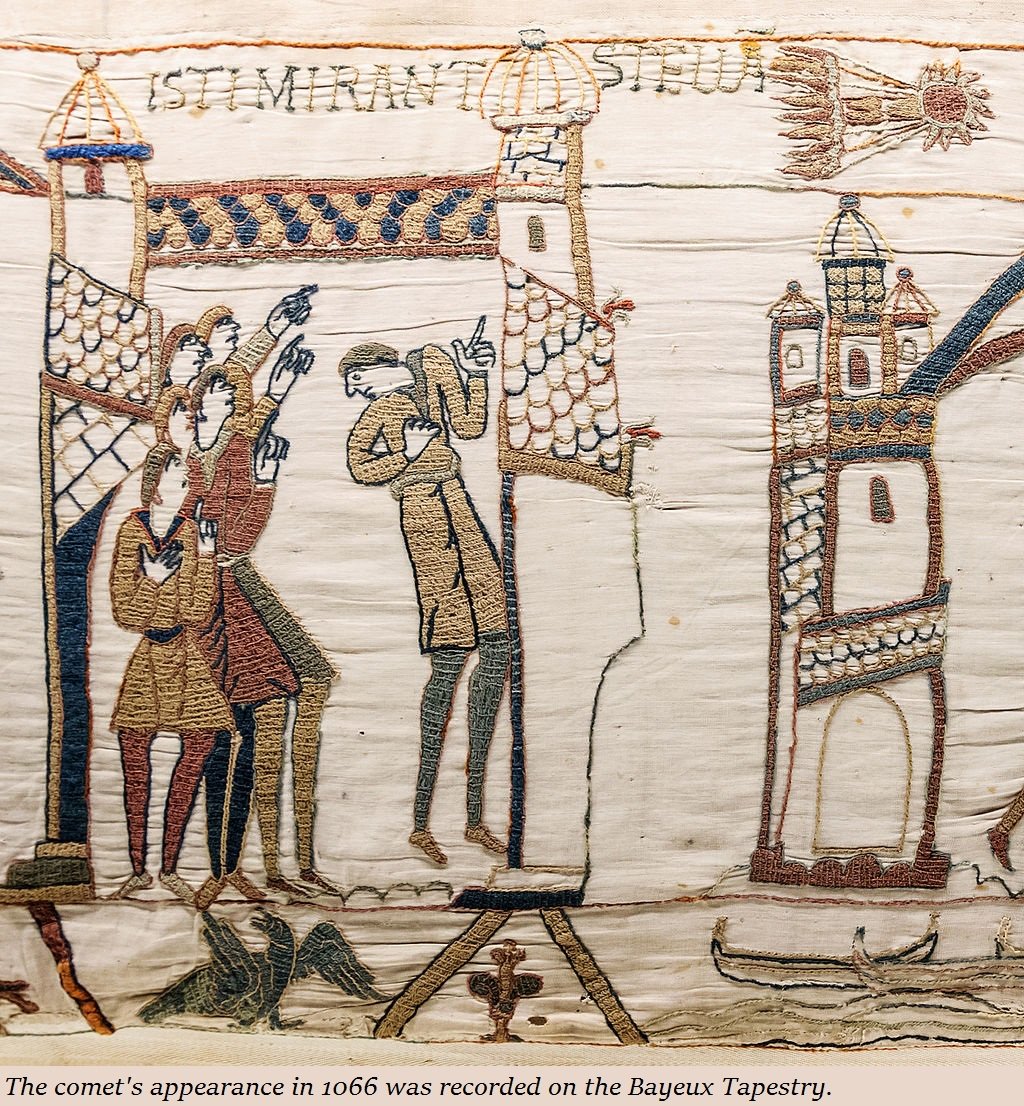 ISTI MIRANT STELLÃ
The comet's appearance in 1066 was recorded on the Bayeux Tapestry.